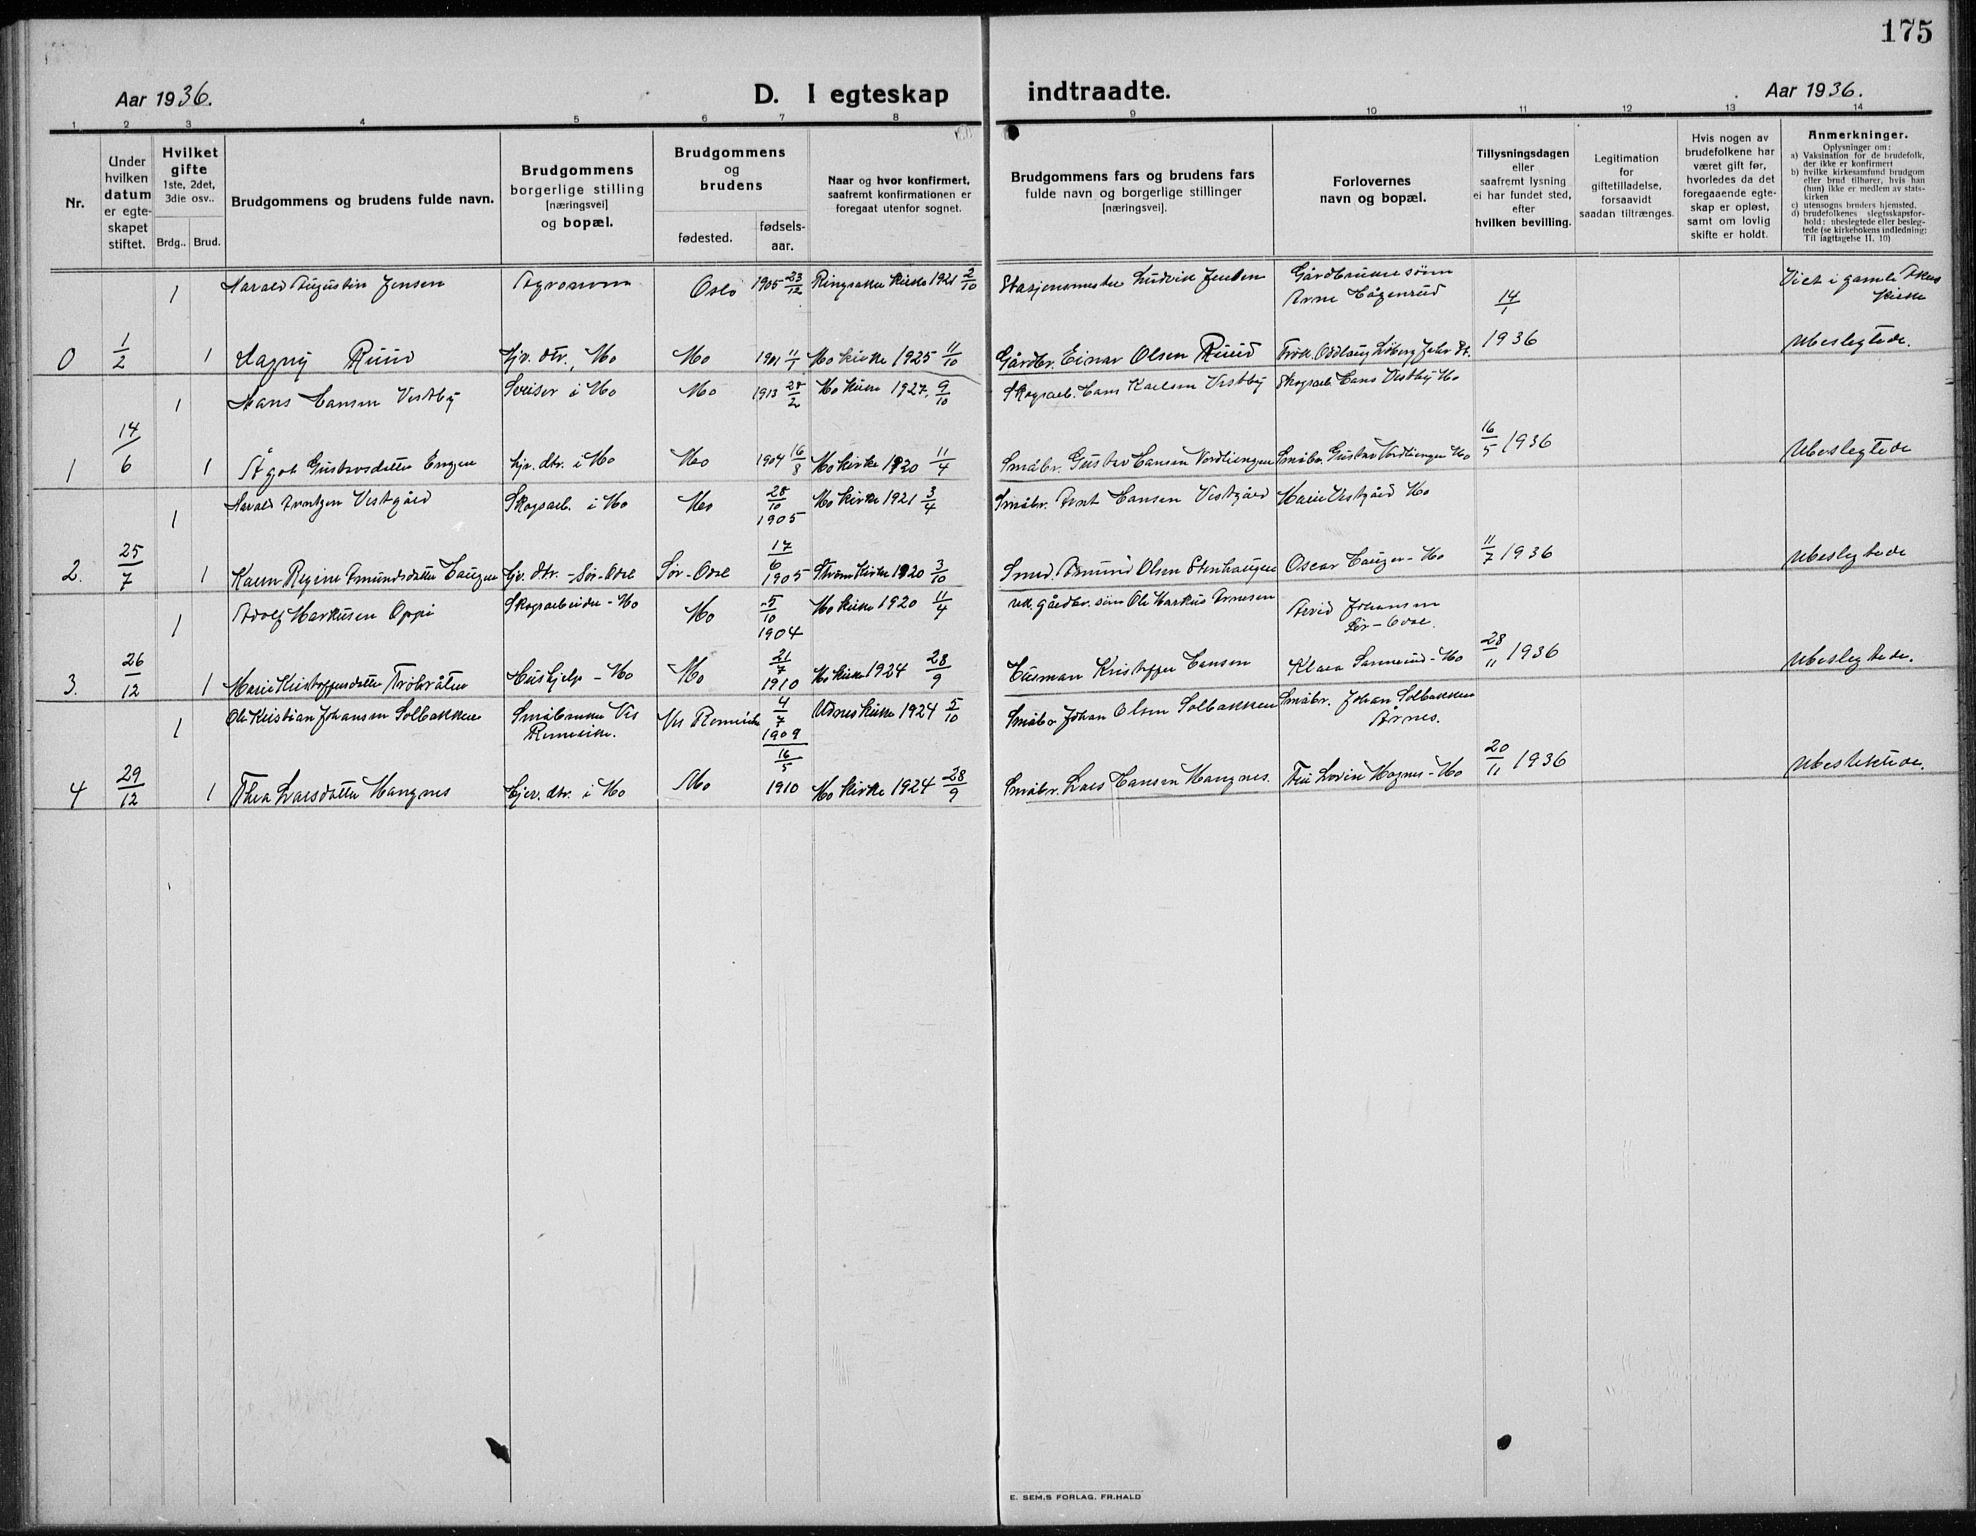 175
Aar 1936.
D. I egteskap indtraadte.
Aar 1936.
1 2 3 4 5 6 7 8 9 10 11 12 13 14
Nr.
Under hvilken datum er egte-skapet stiftet.
Hvilket gifte 1ste, 2det, 3die osv..
Brdg.. Brud.
Brudgommens og brudens fulde navn.
Brudgommens borgerlige stilling [næringsvei] og bopæl.
Brudgommens og brudens
fødested.
fødsels-aar.
Naar og hvor konfirmert, saafremt konfirmationen er foregaat utenfor sognet.
Brudgommens fars og brudens fars fulde navn og borgerlige stillinger [næringsvei].
Forlovernes navn og bopæl.
Tillysningsdagen eller saafremt lysning ei har fundet sted, efter hvilken bevilling.
Legitimation for giftetilladelse, forsaavidt saadan tiltrænges.
Hvis nogen av brudefolkene har været gift før, hvorledes da det foregaaende egte-skap er opløst, samt om lovlig skifte er holdt.
Anmerkninger.
Oplysninger om:
a) Vaksination for de brudefolk, der ikke er konfirmert
b) hvilke kirkesamfund brudgom eller brud tilhører, hvis han (hun) ikke er medlem av stats-kirken
c) utensogns bruders hjemsted.
d) brudefolkenes slegtsskapsfor-hold: ubeslegtede eller besleg-tede (se kirkebokens indledning: Til iagttagelse II. 10)
1 Harald Augustin Jensen Agronom Oslo 1905 23/12 Ringsaker kirke 1921 2/10 Stasjonsmester Ludvik Jensen Gårdbrukersønn Viet i gamle Akers
Arne Hågenrud 14/1 kirke
0 1/2 1 Magny Ruud Hjv. dtr., Mo Mo 1911 11/1 Mo kirke 1925 11/10 Gårdbr. Einar Olsen Ruud 1936 Ubeslegtede.
1 Hans Hansen Vestby Sveiser i Mo Mo 1913 28/2 Mo kirke 1927. 9/10 Skogsarb. Hans Karlsen Vestby Skogsarb. Hans Vestby Mo
1 14/6 1 Ågot Gustavsdatter Engen Hjv. dtr. i Mo Mo 1904 16/8 Mo kirke 1920 11/4 Småbr. Gustav Hansen Nordliengen Småbr. Gustav Nordliengen Mo 16/5 1936 Ubeslegtede
1 Harald Arntzen Vestgård Skogsarb. i Mo Mo 28/10 1905 Mo kirke 1921 3/4 Småbr. Arnt Hansen Vestgård Marie Vestgård Mo
2. 25/7 1 Karen Regine Amundsdatter Haugen Hjv. dtr. - Sør-Odal Sør-Odal 17/6 1905 Strøm kirke 1920 3/10 Smed. Amund Olsen Stenhaugen Oscar Haugen - Mo 11/7 1936 Ubeslegtede
1 Adolf Markusen Oppi Skogsarbeider - Mo Mo 5/10 1904 Mo kirke 1920 11/4 gårdbr. søn Ole Markus Arnesen Arvid Johansen
Sør-Odal.
3. 26/12 1 Marie Kristoffersdatter Trøbråten Hushjelp - Mo Mo 21/7 1910 Mo kirke 1924 28/9 Husmann Kristoffer Hansen Klara Sannerud - Mo 28/11 1936 Ubeslegtede.
1 Ole Kristian Johansen Solbakken Småbruker Nes Romerike. Nes Romerike 4/7 1909 Udnes kirke 1924 5/10 Småbr. Johan Olsen Solbakken Småbr. Johan Solbakken
Årnes.
4 29/12 1 Thea Larsdatter Mangnes Hjv. dtr. i Mo Mo 16/5 1910 Mo kirke 1924 28/9 Småbr. Lars Hansen Mangnes. Fru Lovise Magnes - Mo 20/11 1936 Ubeslektede.
E. SEM,S FORLAG. FR.HALD